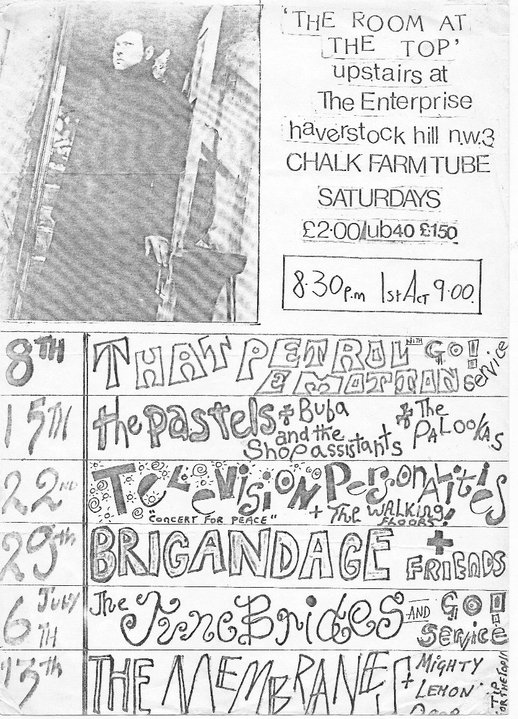 'THE ROOM AT
THE TOP'
upstairs at
The Enterprise
haverstock hill n.w.3
CHALK FARM TUBE
SATURDAYS
£2·00/ub40 £1·50
8·30p.m 1st Act 9·00.
8TH THAT PETROL EMOTION WITH GO! Service
15TH the pastels + Buba and the Shop assistants + The PALOOKAS
22ND TELEVISION PERSONALITIES
"CONCERT FOR PEACE" + The WALKING FLOORS!
29th BRIGANDAGE + FRIENDS
6TH July The JUNE BRIDES AND GO! SERVICE
13th THE MEMBRANES + MIGHTY LEMON